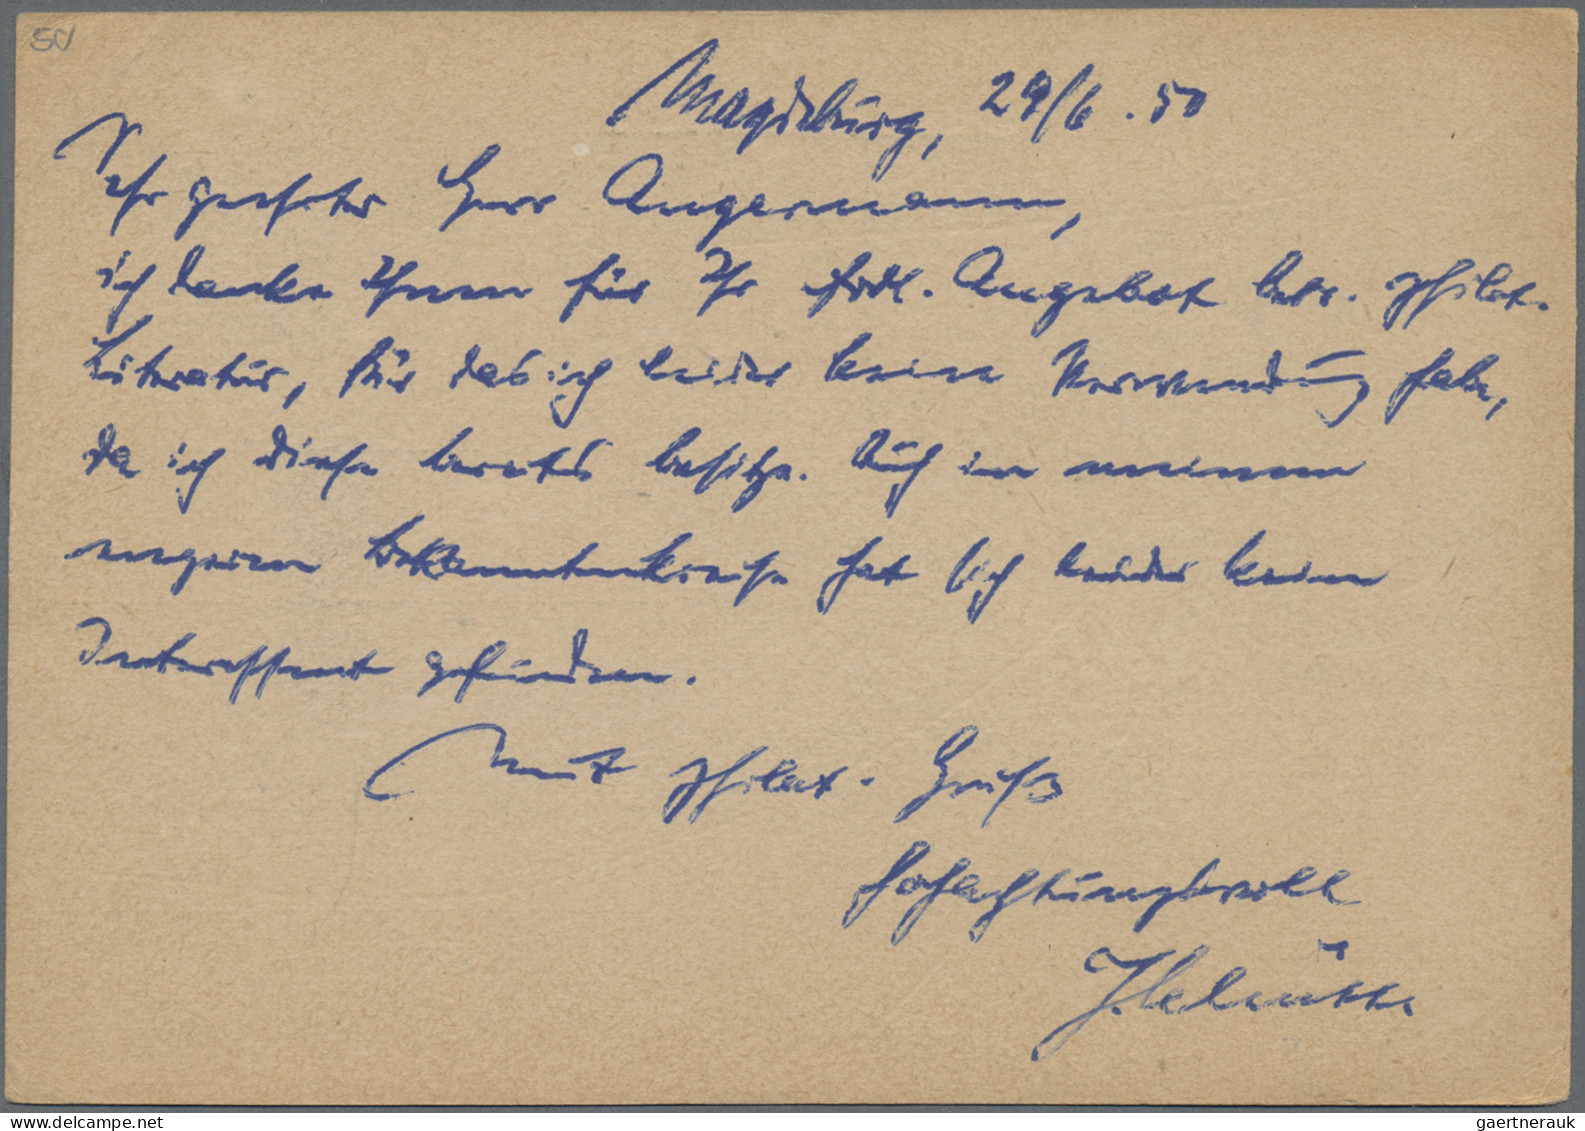 50
Magdeburg, 29/6. 50
Sehr geehrter Herr Angermann,
ich danke Ihnen für Ihr frdl. Angebot betr. philat.
Literatur, für das ich leider keine Verwendung habe,
da ich diese bereits besitze. Auch in meinem
engeren Bekanntenkreise hat sich leider kein
Interessent gefunden.
Mit philat. Gruß
hochachtungsvoll
gaertnerauk